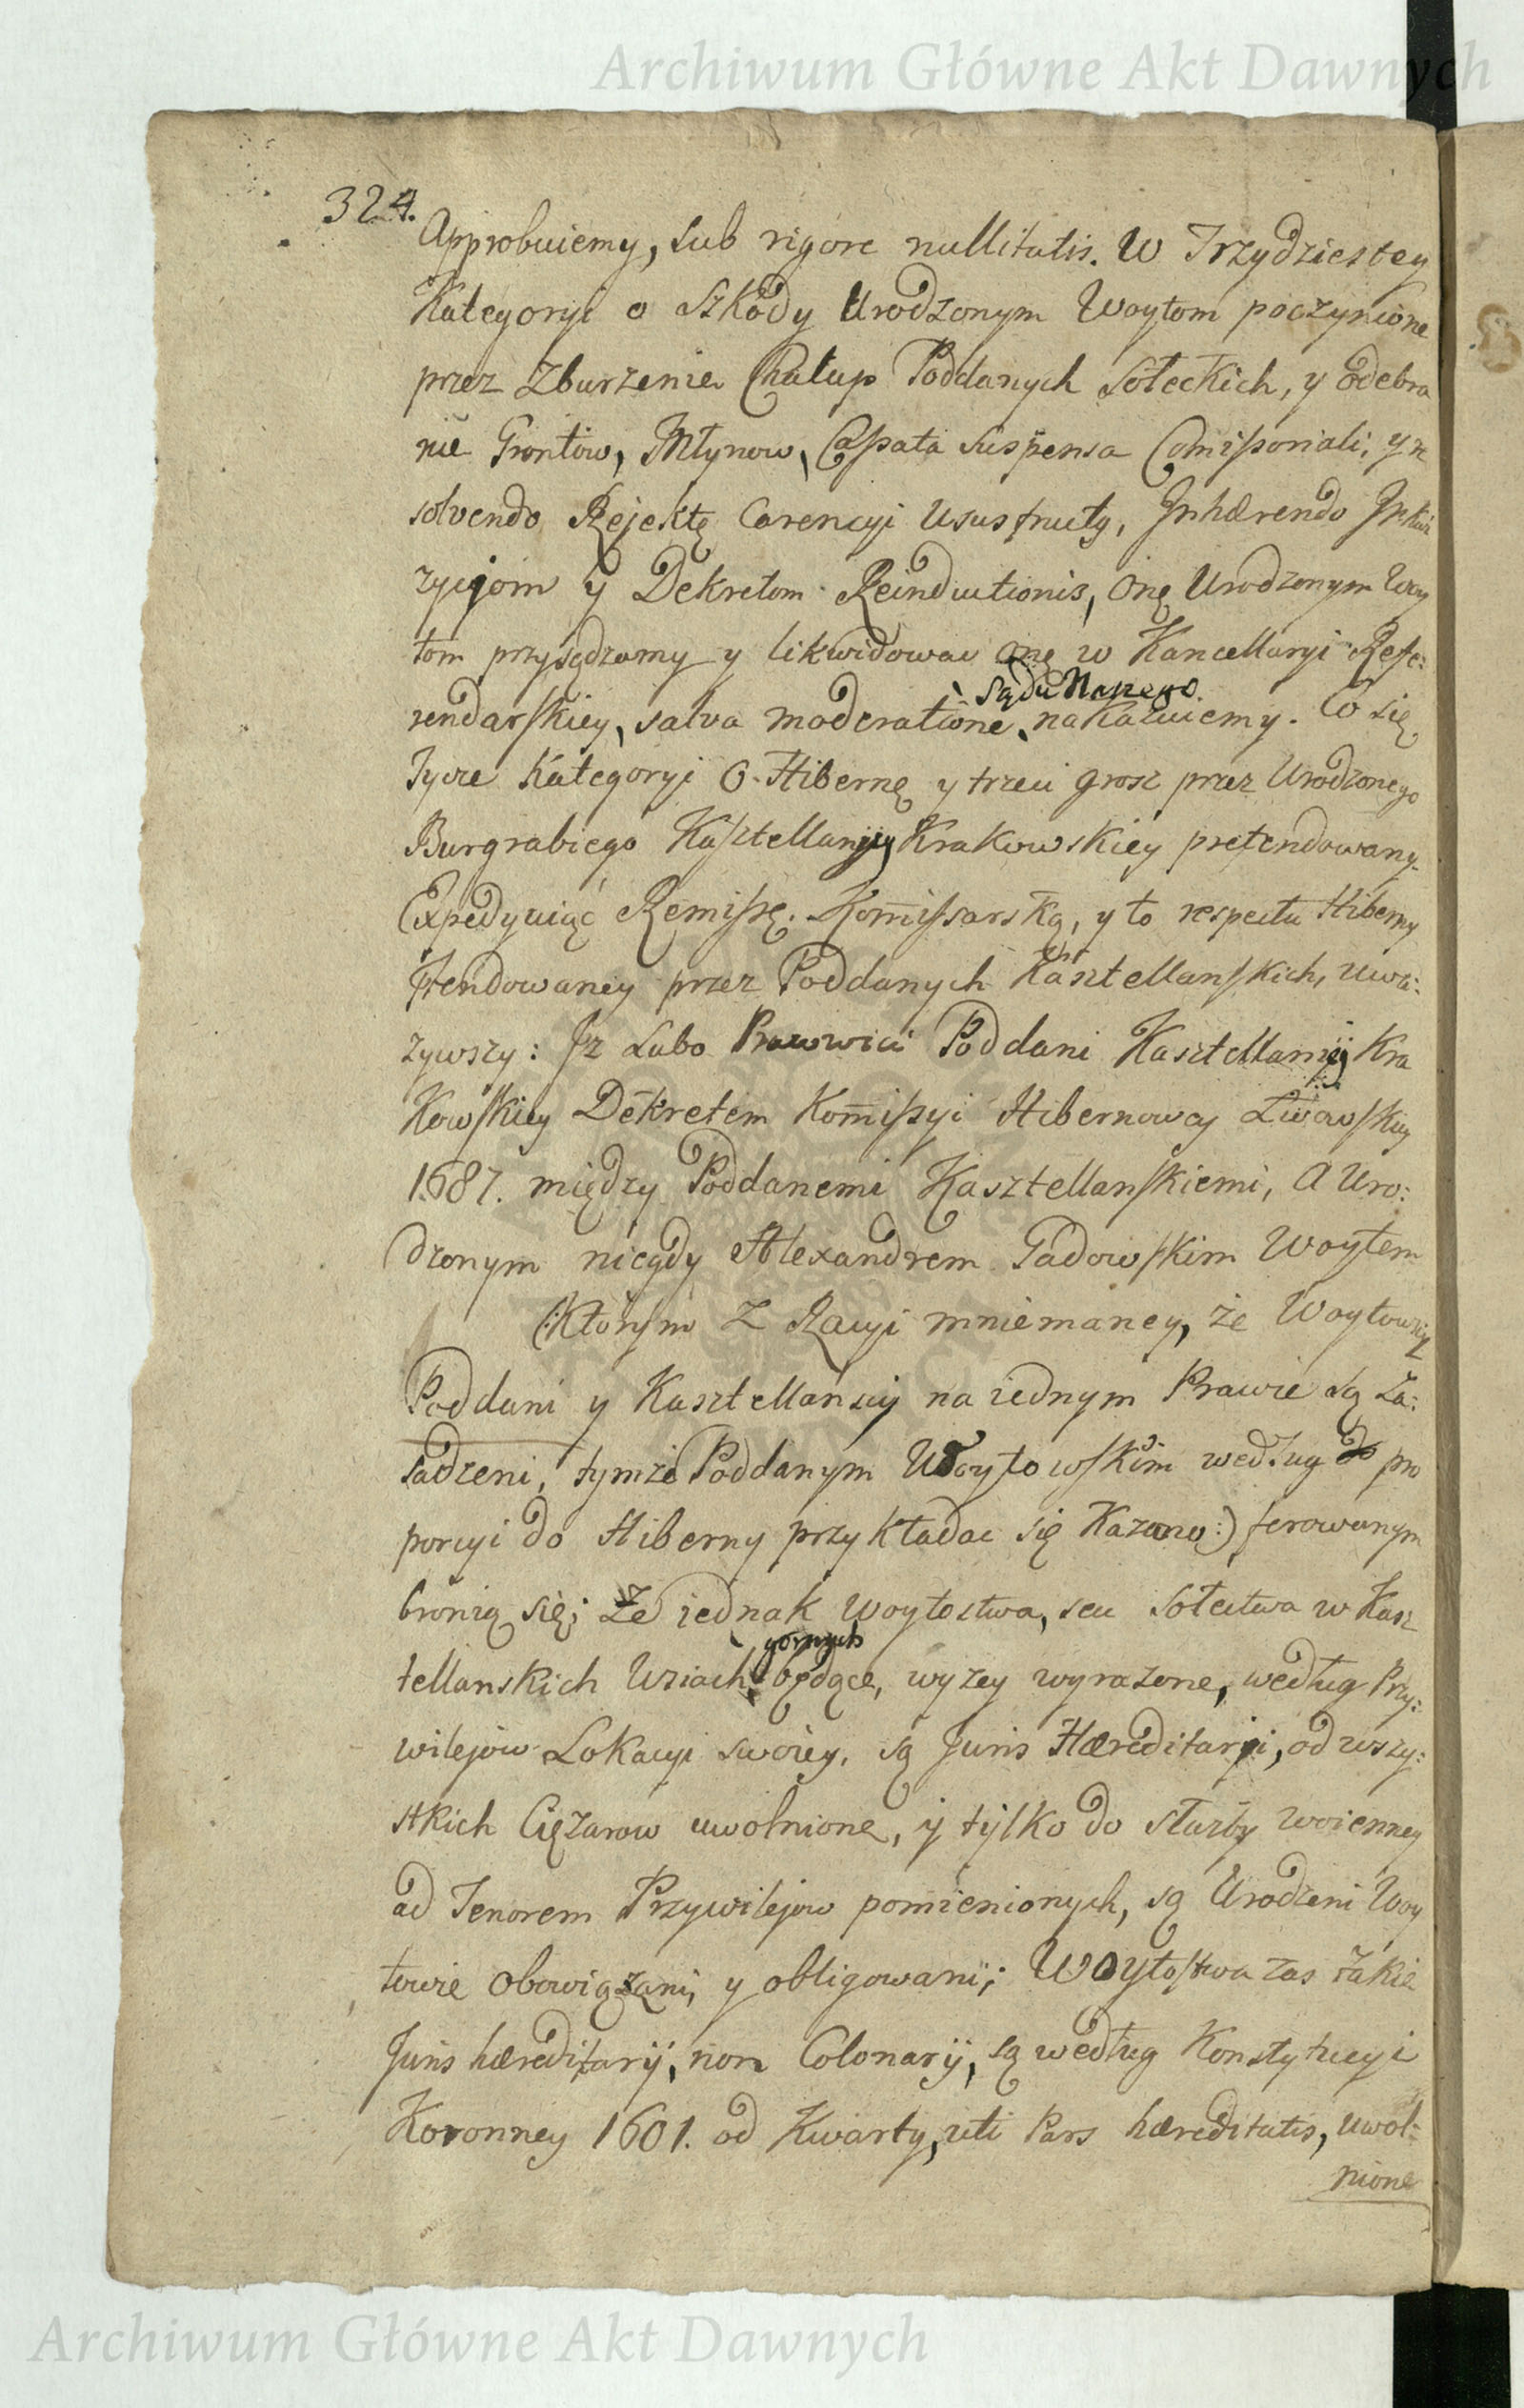 Archiwum Główne Akt Dawnych
324.
Approbuiemy, sub rigore nullitatis. W Trzydziestey
Kategoryi o Szkody Urodzonym Woytom poczynione
przez Zburzenie Chałup Poddanych Sołeckich, y odebra
nie Grontow, Młynow, Cassata Suspensa Comissoriali, y re
solvendo Rejektę Carencyi Ususfructy, Inhærendo Inkwi
zycyjom y Dekretom Reinductionis, onę Urodzonym Woy
tom przysądzamy y likwidować onę w Kancellaryi Refe:
Sądu Naszego
rendarskiey, salva moderatione, nakazuiemy. Co się
tycze Kategoryi o Hibernę y trzeci grosz przez Urodzonego
Burgrabiego Kasztellanyi Krakowskiey pretendowany.
Expedyuiąć Remissę Kom̅issarską, y to respectu Hiberny
ptendowaney przez Poddanych Kasztellanskich, uwa:
zywszy: Iz Lubo Prawwici Poddani Kasztellanyi Kra
kowskiey Dekretem Kom̅issyi Hibernowey Lwowskiey
1687. między Poddanemi Kasztellanskiemi, a Uro:
dzonym niegdy Alexandrem Gadowskim Woytem
(:Ktorym z Racyi mniemaney, że Woytowscy
Poddani y Kasztellanscy na iednym Prawie są Za:
sadzeni, tymże Poddanym Woytowskim według pro
porcyi do Hiberny przykładac się Kazano:) ferowanym
bronią się; Że iednak Woytostwa, seu Sołectwa w Kasz
gornych
tellanskich Wsiach będące, wyzey wyrazone, według Przy:
wilejow Lokacyi swoiey, są Juris Hæreditarji, od wszy:
stkich Cięzarow uwolnione, y tylko do służby woienney
ad Tenorem Przywilejow pomienionych, są Urodzeni Woy
towie obowiązani, y obligowani; Woytostwa zas takie
Juris hæreditarij, non Colonarij, są według Konstytucyi
Koronney 1601. od Kwarty, uti Pars hæreditatis, uwol:
nione
Archiwum Główne Akt Dawnych